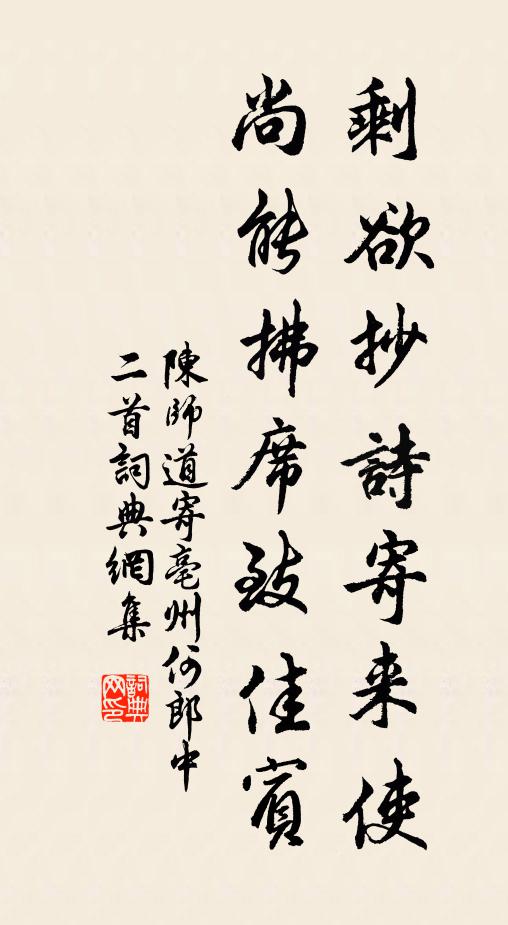 剩欲抄詩寄来使
尚能拂席致佳賓
陳師道寄亳州何郎中
二首詞典網集
詞典
网印